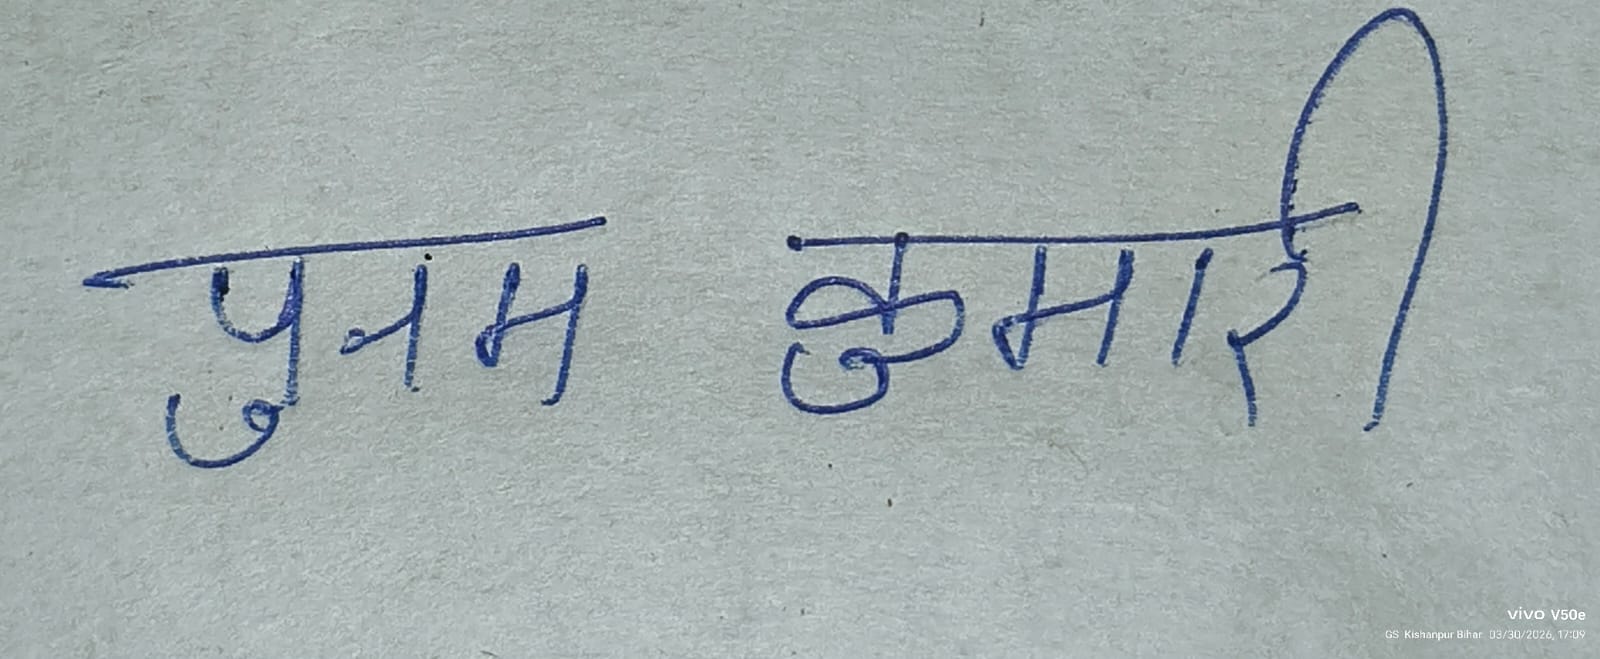 पुनम कुमारी
vivo V50e
GS Kishanpur Bihar 03/30/2026, 17:09